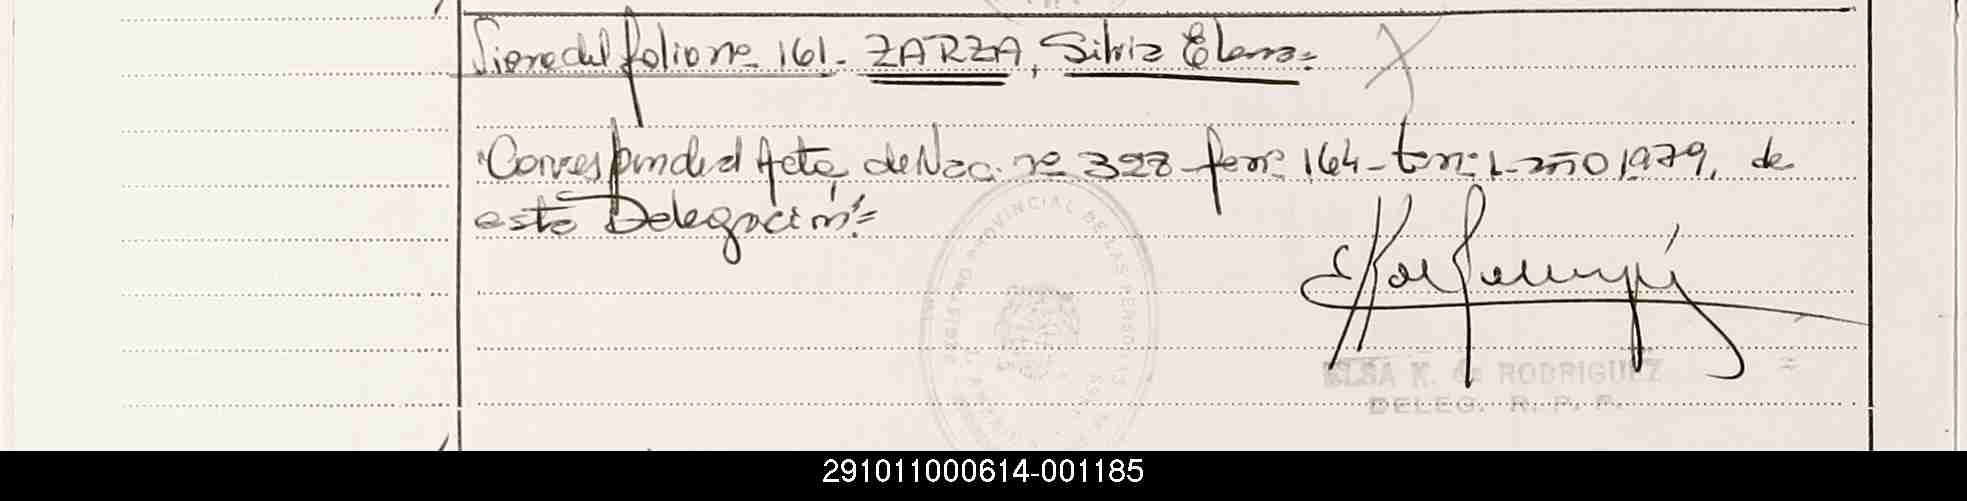 Viene del folio nº 161.- ZARZA, Silvia Elena=
Corresponde al Acta de Nac. nº 328 - fº nº 164 - tº nº 1 - año 1979, de
esta Delegación=
REGISTRO PROVINCIAL DE LAS PERSONAS
ELSA K. de RODRIGUEZ
DELEG. R. P. P.
291011000614-001185